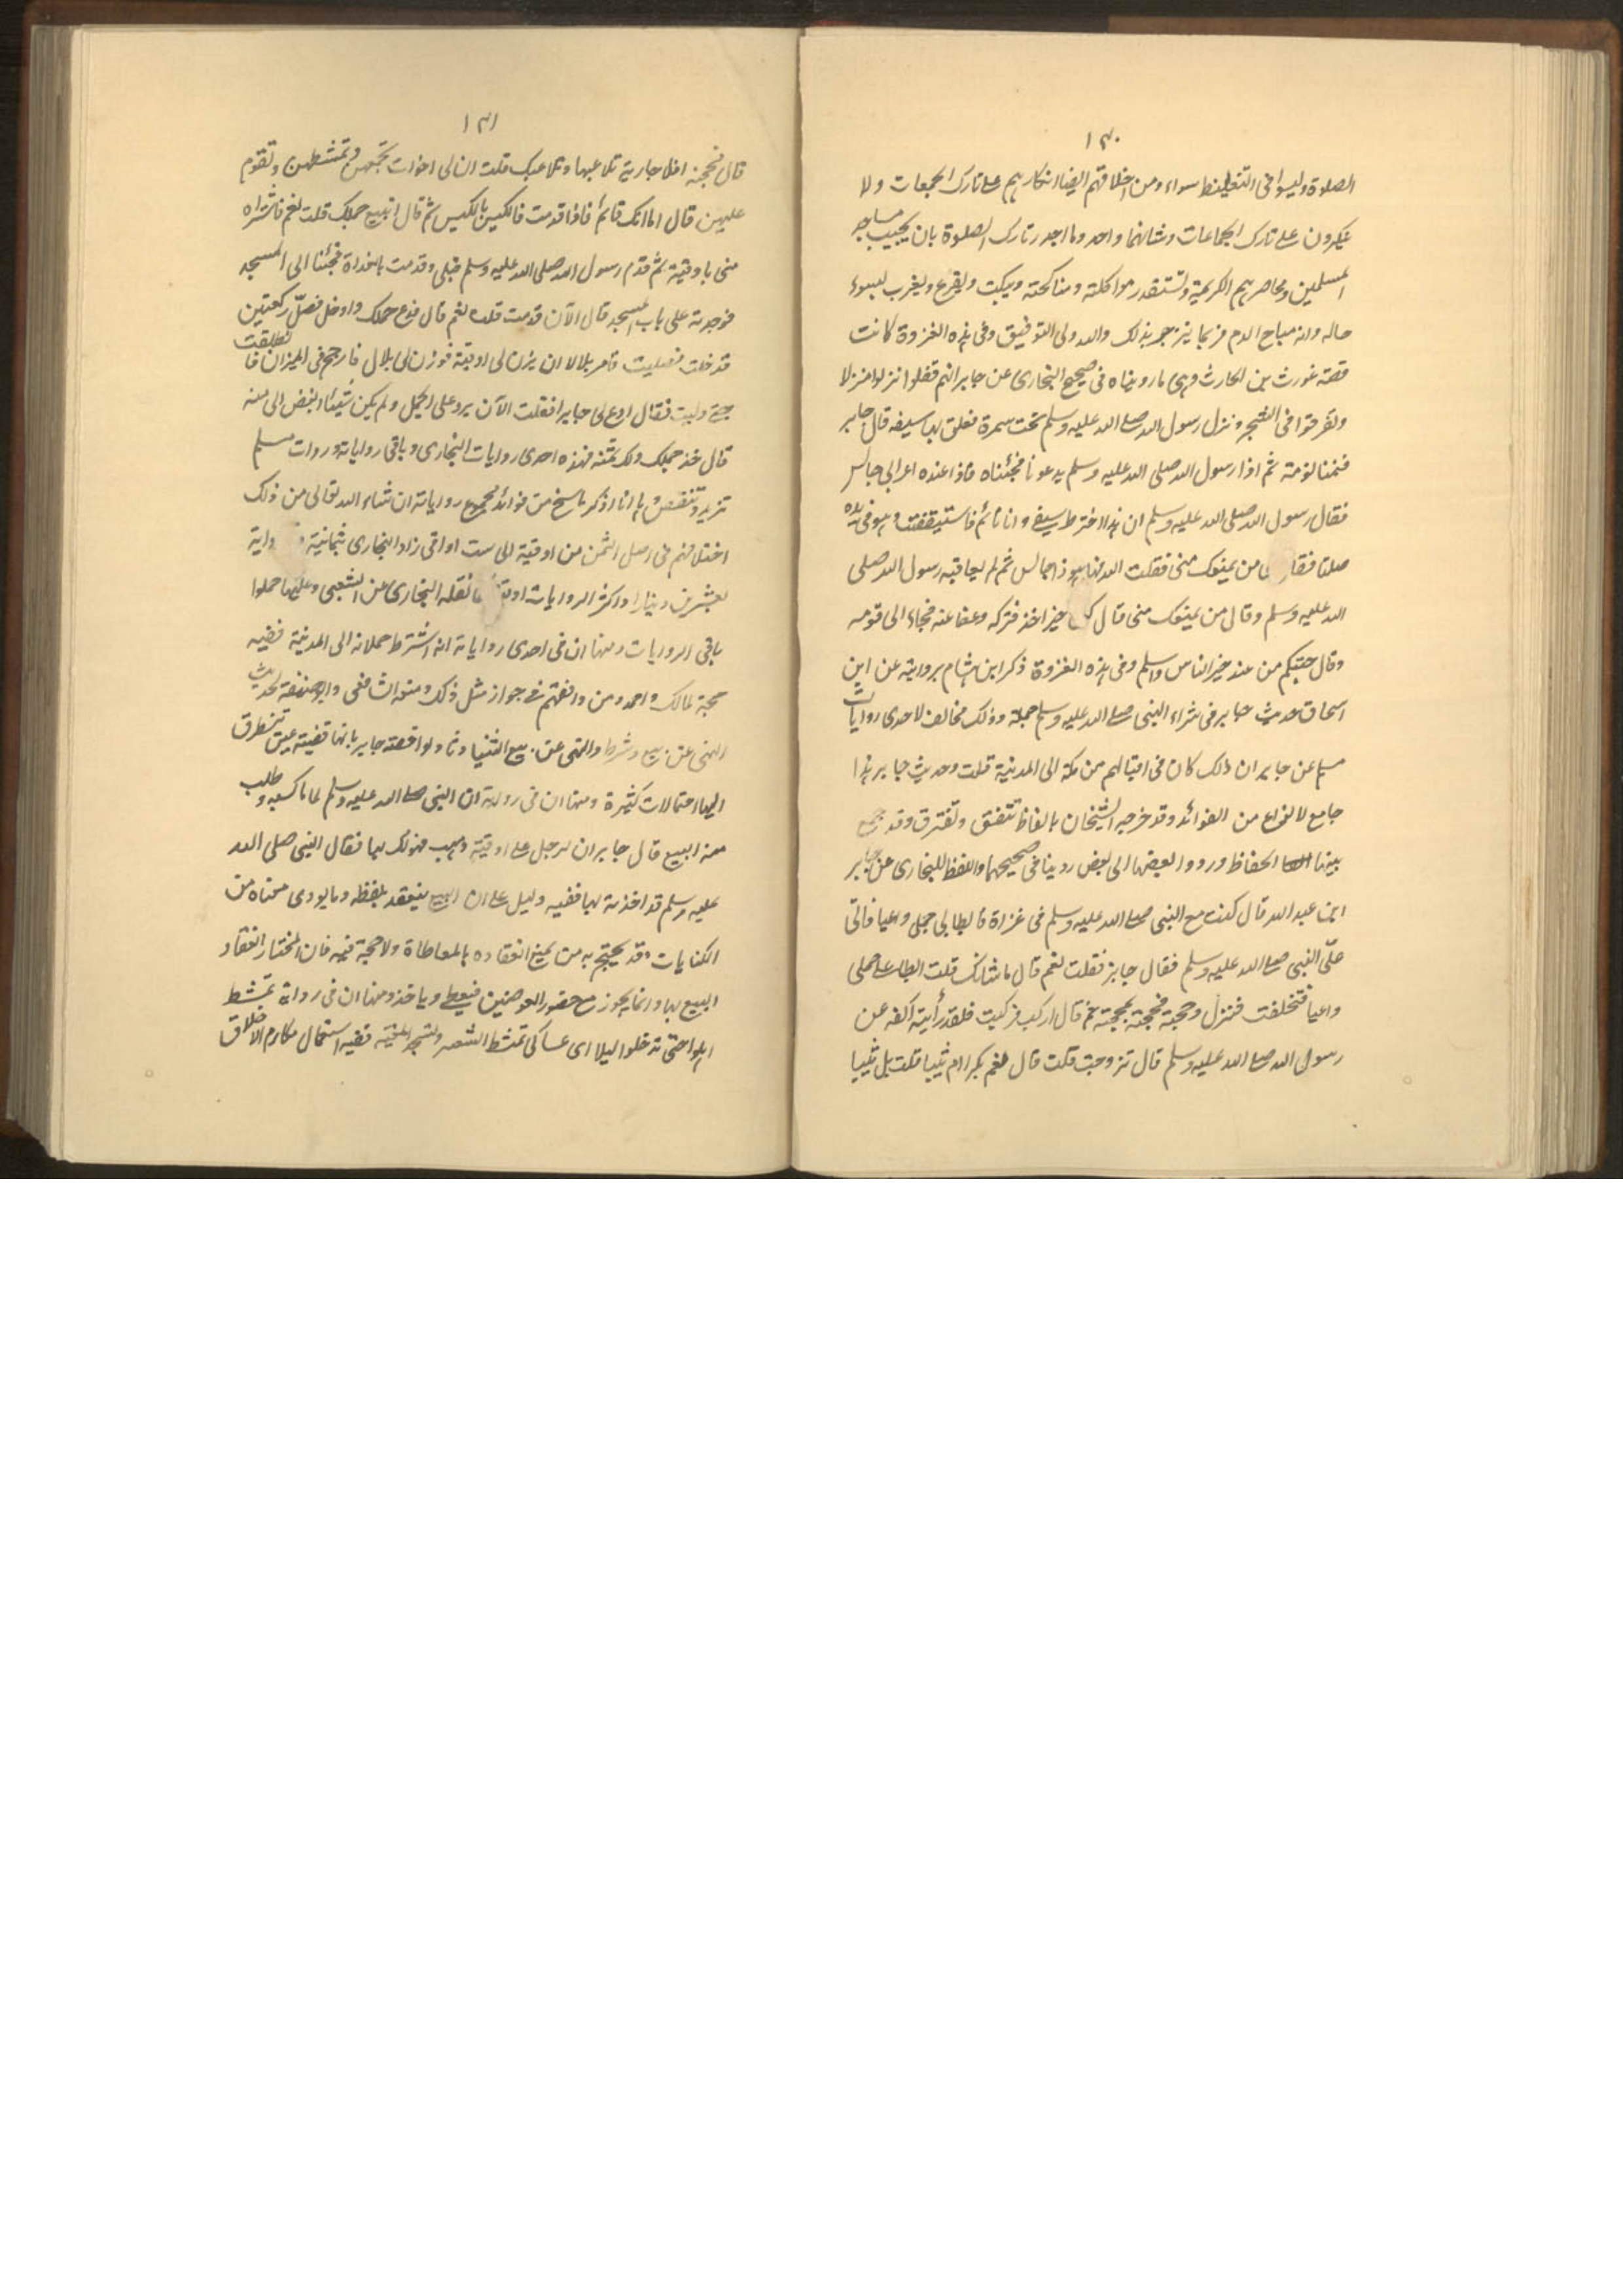 ١٣٠
الصلوة وليسوا فى التغليظ سواء ومن اخلاقهم ايضا انكارهم على تارك الجمعات ولا
ينكرون على تارك الجماعات وشانهما واحد وما اجدر تارك الصلوة بان يجنب مساجد
المسلمين ومحاضرهم الكريمة وتستقذر مواكلته ومناكحته ويبكت ويقرع ويغرب لسوء
حاله وانه مباح الدم فربما ينزجر بذلك والله ولى التوفيق وفى هذه الغزوة كانت
قصة غورث بن الحارث وهى ما رويناه فى صحيح البخارى عن جابر انهم قفلوا نزلوا منزلا
وتفرقوا فى الشجر ونزل رسول الله صلى الله عليه وسلم تحت سمرة فعلق بها سيفه قال جابر
فنمنا نومة ثم اذا رسول الله صلى الله عليه وسلم يدعونا فجئناه فاذا عنده اعرابي جالس
فقال رسول الله صلى الله عليه وسلم ان هذا اخترط سيفى وانا نائم فاستيقظت وهو فى يده
صلتا فقال من يمنعك منى فقلت الله فها هو ذا جالس ثم لم يعاقبه رسول الله صلى
الله عليه وسلم وقال من يمنعك منى قال خير اخذ فتركه وعفا عنه فجاء الى قومه
وقال جئتكم من عند خير الناس واسلم وفى هذه الغزوة ذكر ابن هشام بروايته عن ابن
اسحاق حديث جابر فى شراء النبى صلى الله عليه وسلم جمله وذلك مخالف لاحدى روايات
مسلم عن جابر ان ذلك كان فى اقبالهم من مكة الى المدينة قلت وحديث جابر هذا
جامع لانواع من الفوائد وقد خرجه الشيخان بالفاظ تتفق وتفترق وقد جمع
بينها الحفاظ وردوا بعضها الى بعض روينا فى صحيحهما واللفظ للبخارى عن جابر
ابن عبد الله قال كنت مع النبى صلى الله عليه وسلم فى غزاة فابطا بى جملى واعيا فاتى
علىّ النبى صلى الله عليه وسلم فقال جابر فقلت نعم قال ما شانك قلت ابطا على جملى
واعيا فتخلفت فنزل وحجبه فحجنه بمحجنه ثم قال اركب فركبت فلقد رأيته اكفه عن
رسول الله صلى الله عليه وسلم قال تزوجت قلت نعم قال بكرا ام ثيبا قلت بل ثيبا
١٣١
قال افلا جارية تلاعبها وتلاعبك قلت ان لى اخوات تجمعهن وتمشطهن وتقوم
عليهن قال اما انك قادم فاذا قدمت فالكيس بالكيس ثم قال اتبيع جملك قلت نعم فاشتراه
منى باوقية ثم قدم رسول الله صلى الله عليه وسلم قبلى وقدمت بالغداة فجئنا الى المسجد
فوجدته على باب المسجد قال الآن قدمت قلت نعم قال فدع جملك وادخل فصلّ ركعتين
فدخلت فصليت فامر بلالا ان يزن لى اوقية فوزن لى بلال فارجح فى الميزان فانطلقت
حتى وليت فقال ادع لى جابرا فقلت الآن يرد على الجمل ولم يكن شيئا ابغض الى منه
قال خذ جملك ولك ثمنه فهذه احدى روايات البخارى وباقى رواياته وروات مسلم
تزيد وتنقص وها انا اذكر ما سنح من فوائد مجموع رواياته ان شاء الله تعالى من ذلك
اختلافهم فى اصل الثمن من اوقية الى ست اواقى زاد البخارى ثمانية
بعشرين دينارا واكثر الروايات نقله البخارى عن الشعبى وعليها حملوا
باقى الروايات ومنها ان فى احدى رواياته انه اشترط حملانه الى المدينة ففيه
حجة لمالك واحمد ومن وافقهم فى جواز مثل ذلك ومنعه الشافعى وابو حنيفة لحديث
النهى عن بيع وشرط والنهى عن بيع الثنيا وتاولوا قصة جابر بانها قضية عين تتطرق
اليها احتمالات كثيرة ومنها ان فى رواية ان النبى صلى الله عليه وسلم لما ماكسه وطلب
منه البيع قال جابر ان لرجل على اوقية ذهب فهو لك بها فقال النبى صلى الله
عليه وسلم قد اخذته بها ففيه دليل على ان البيع ينعقد بلفظه وما يودى معناه من
الكنايات وقد يحتج به من يمنع انعقاده بالمعاطاة ولا حجة فيه فان المختار انعقاد
البيع بها وانما يجوز مع حضور العوضين فيعطى وياخذ ومنها ان فى رواية تمشط
امهلوا حتى تدخلوا ليلا اى عسا كى تمتشط الشعثة وتستحد المغيبة ففيه استعمال مكارم الاخلاق